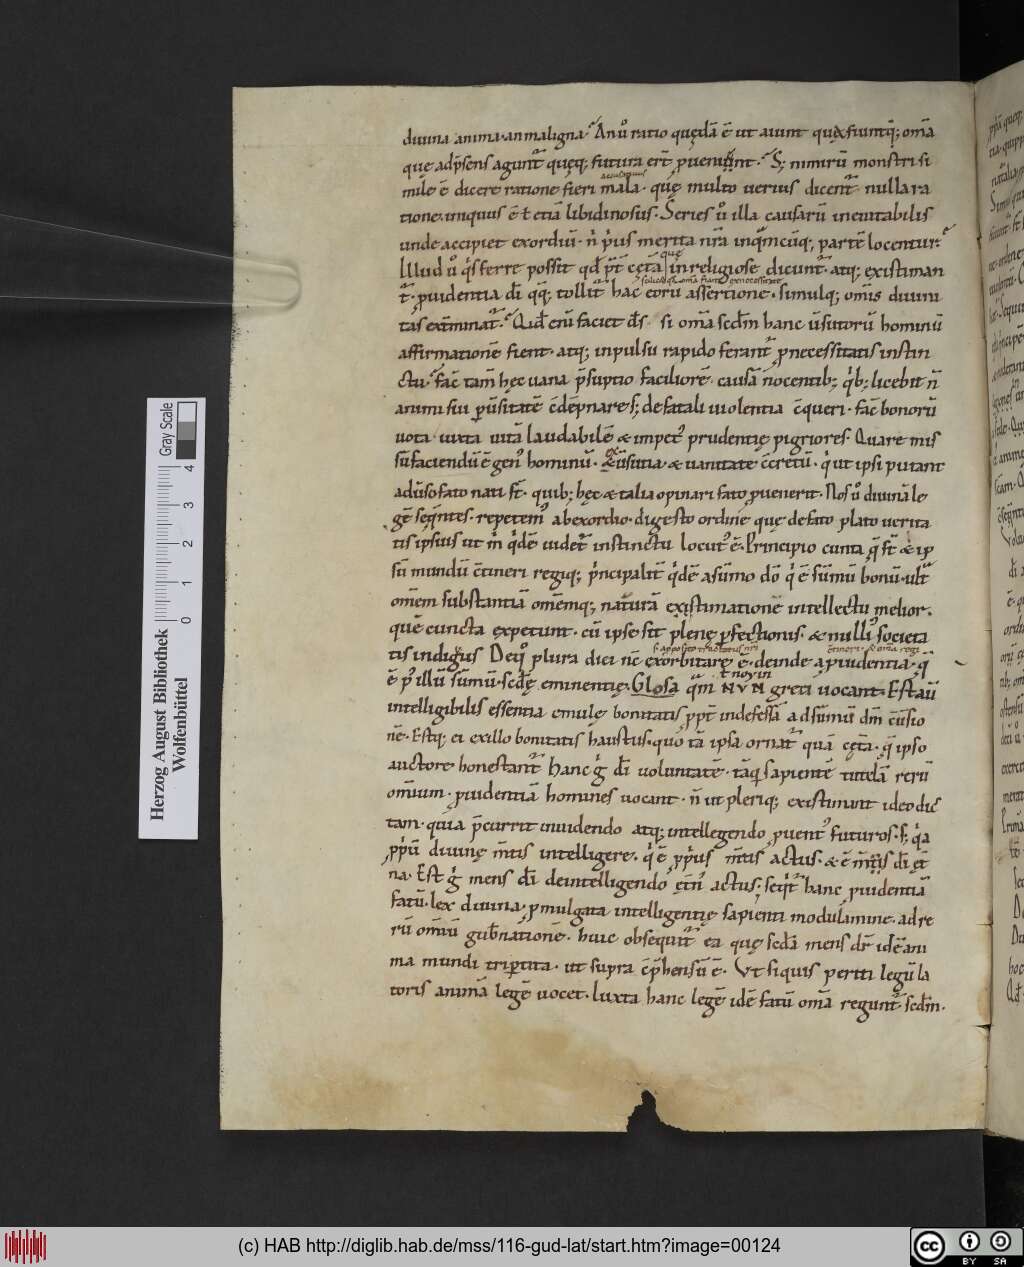 diuina anima· an maligna· An u͛o ratio quędā ē ut aiunt quæ fiuntq̄; om̄a
quę adp̄sens agunt᷑ quęq; futura er̄t ꝓueniunt· S; nimirū monstri si
mile ē dicere ratione fieri mala· quę multo uerius dicent᷑ nulla ra
tione· iniquus ē ł etiā libidinosus· Series u͛o illa causarū ineuitabilis
unde accipiet exordiū· n̄ p̓us merita nr̄a inq͛mcūq; partē locentur·
Illud u͛o q͛s ferre possit qđ p̄t cęta in religiose dicunt᷑· atq; existiman
t᷑· ꝓuidentia dī q̄q; tollit᷑ hac eorū assertione· simulq; om̄is diuini
tas ext̄minat᷑· Qđ eni̅ faciet d̄s si om̄a scđm hanc u̅sutorū hominū
affirmationē fient· atq; inpulsu rapido ferant᷑ ꝓnecessitatis instin
ctu· fac̄ tam̄ hęc uana p̄suptio faciliorē· causā nocentib; q͛b; licebit n̄
animi sui ꝑu̅sitatē c̄dēpnare s; de fatali uiolentia c̄queri· fac̄ bonorū
uota iuxta uitā laudabilē & impet᷒ prudentię pigriores· Quare mis
su̅ faciendū ē gen᷒ hominū· & u̅sutia· & uanitate c̄cretū· q͛ ut ipsi putant
adu̅so fato nati st̄· quib; hęc & talia opinari fato ꝓuenerit· Nos u͛o diuinā le
gē seq̄ntes· repetem᷒ ab exordio· digesto ordine quę de fato plato uerita
tis ipsius ut m̄ q͛dē uidet᷑ instinctu locut᷒ ē· Principio cunta q̄ st̄ & ip
su̅ mundū c̄tineri regiq; p͛ncipalit᷑ q͛dē a su̅mo dō q͛ ē su̅mū bonū· ult᷑
omēm substantiā omēmq; naturā existimationē intellectu melior·
quē cuncta expetunt· cū ipse sit plenę ꝑfectionis· & nulli᷒ societa
s· apposito tractatus nr̄i c̄tineri· & om̄a regi
tis indigus Deq͛ plura dici nc̄ exorbitare ē· deinde a ꝓuidentia· q̄
ł noyin
ē p᷒ illū su̅mū· scđę eminentię· Glosa q̄m NYN greci uocant· Est aū
intelligibilis essentia emulę bonitatis ppt̄ indefessā ad su̅mū dm̄ c̄u̅sio
nē· Estq; ei ex illo bonitatis haustus· quo tā ipsa ornat᷑ quā cęta· q̄ ipso
auctore honestant᷑ Hanc g͛ dī uoluntatē· tāq̄ sapientē tutelā rerū
omnium· ꝓuidentiā homines uocant· n̄ ut pleriq; existimant ideo dic
tam· quia p̄currit in uidendo atq; intellegendo ꝓuent᷒ futuros· s; q͛a
ꝓp͛ū diuinę m̄tis intelligere· q͛ ē ꝓp͛us m̄tis actus· & ē m̄tis dī ęt̄
na· Est g͛ mens dī de intelligendo ęt̄n᷒ actus· seq͛t᷑ hanc ꝓuidentiā
fatū· lex diuina· ꝓmulgata intelligentię sapienti modulamine· ad re
rū omniū gub̄nationē· huic obsequit᷑ ea quę scđa mens dr̄ id ē ani
ma mundi tripertita· ut supra c̄p̄hensū ē· Vt siquis periti legu̅la
toris animā legē uocet· Iuxta hanc legē id ē fatū om̄a regunt᷑· scđm·
Herzog August Bibliothek
Wolfenbüttel
0 1 2 3 4
Gray Scale
(c) HAB http://diglib.hab.de/mss/116-gud-lat/start.htm?image=00124
cc BY SA